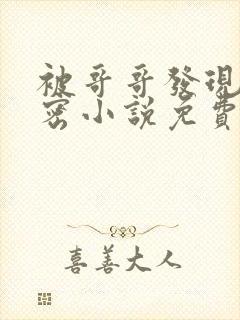 被哥哥發現
密小說免費
喜善大人